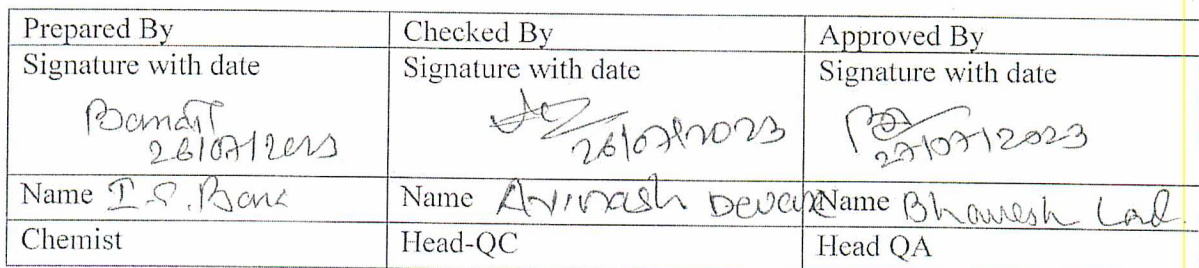 Prepared By Checked By Approved By
Signature with date Signature with date Signature with date
26/07/2023 26/07/2023 27/07/2023
Name I.S. Name Avinash Name Bhavesh Lad.
Chemist Head-QC Head QA